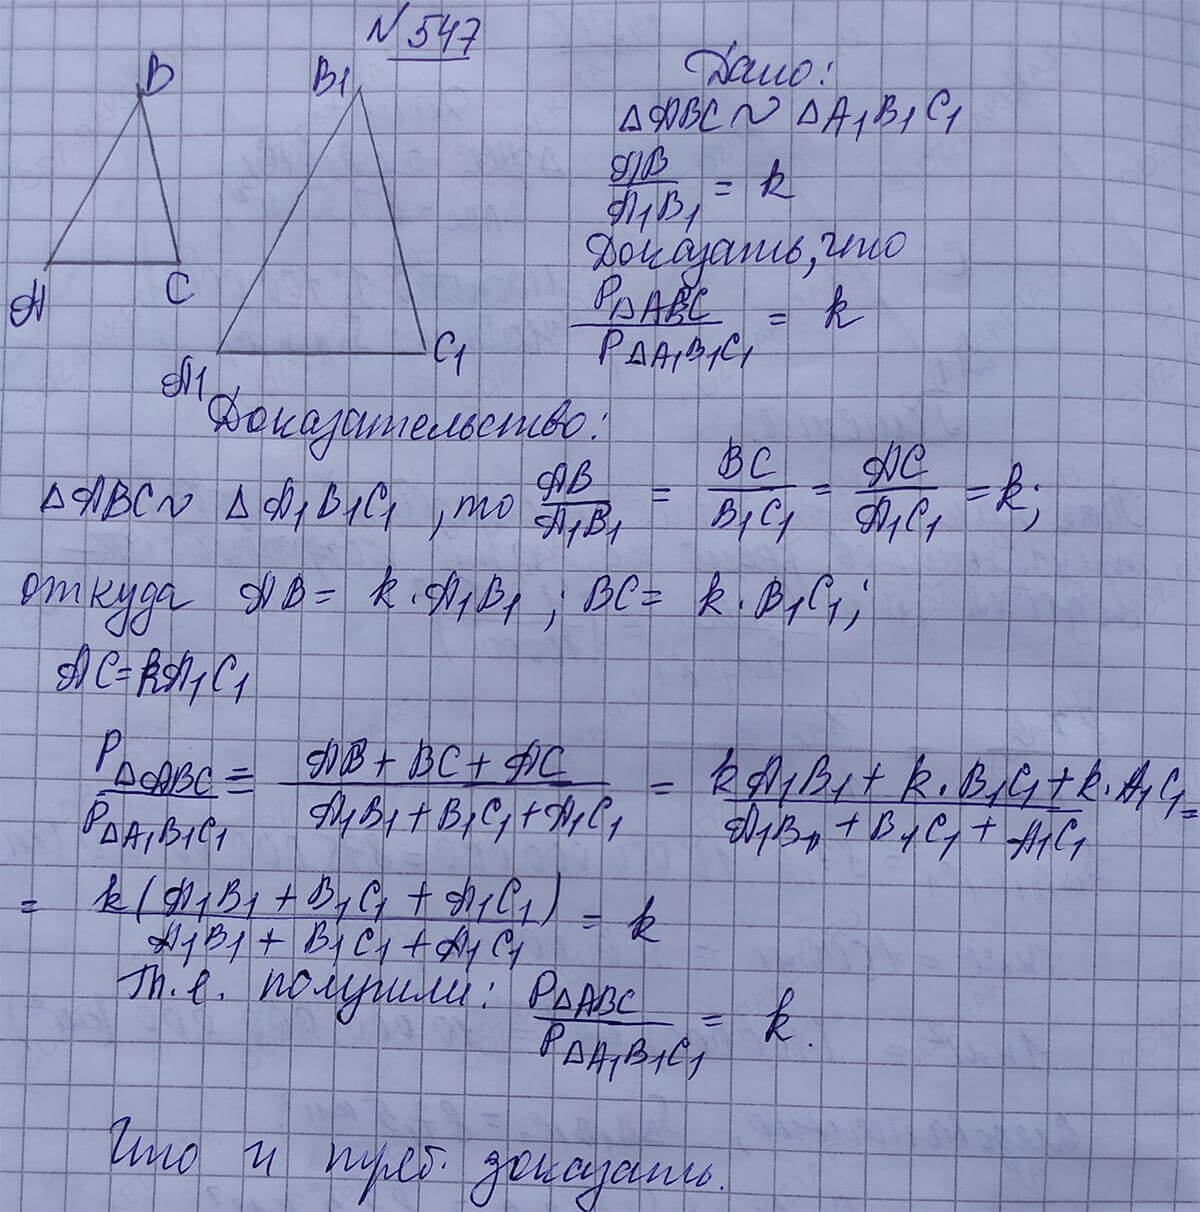 N 547
B
B1
A
C
A1
C1
Дано:
△ABC ~ △A₁B₁C₁
AB/A₁B₁ = k
Доказать, что
P△ABC/P△A₁B₁C₁ = k
Доказательство:
△ABC ~ △A₁B₁C₁, то AB/A₁B₁ = BC/B₁C₁ = AC/A₁C₁ = k;
откуда AB = k·A₁B₁; BC = k·B₁C₁;
AC=kA₁C₁
P△ABC/P△A₁B₁C₁ = (AB + BC + AC)/(A₁B₁ + B₁C₁ + A₁C₁) = (kA₁B₁ + k·B₁C₁ + k·A₁C₁)/(A₁B₁ + B₁C₁ + A₁C₁) =
= k(A₁B₁ + B₁C₁ + A₁C₁)/(A₁B₁ + B₁C₁ + A₁C₁) = k
Т.е. получили: P△ABC/P△A₁B₁C₁ = k.
Что и треб. доказать.